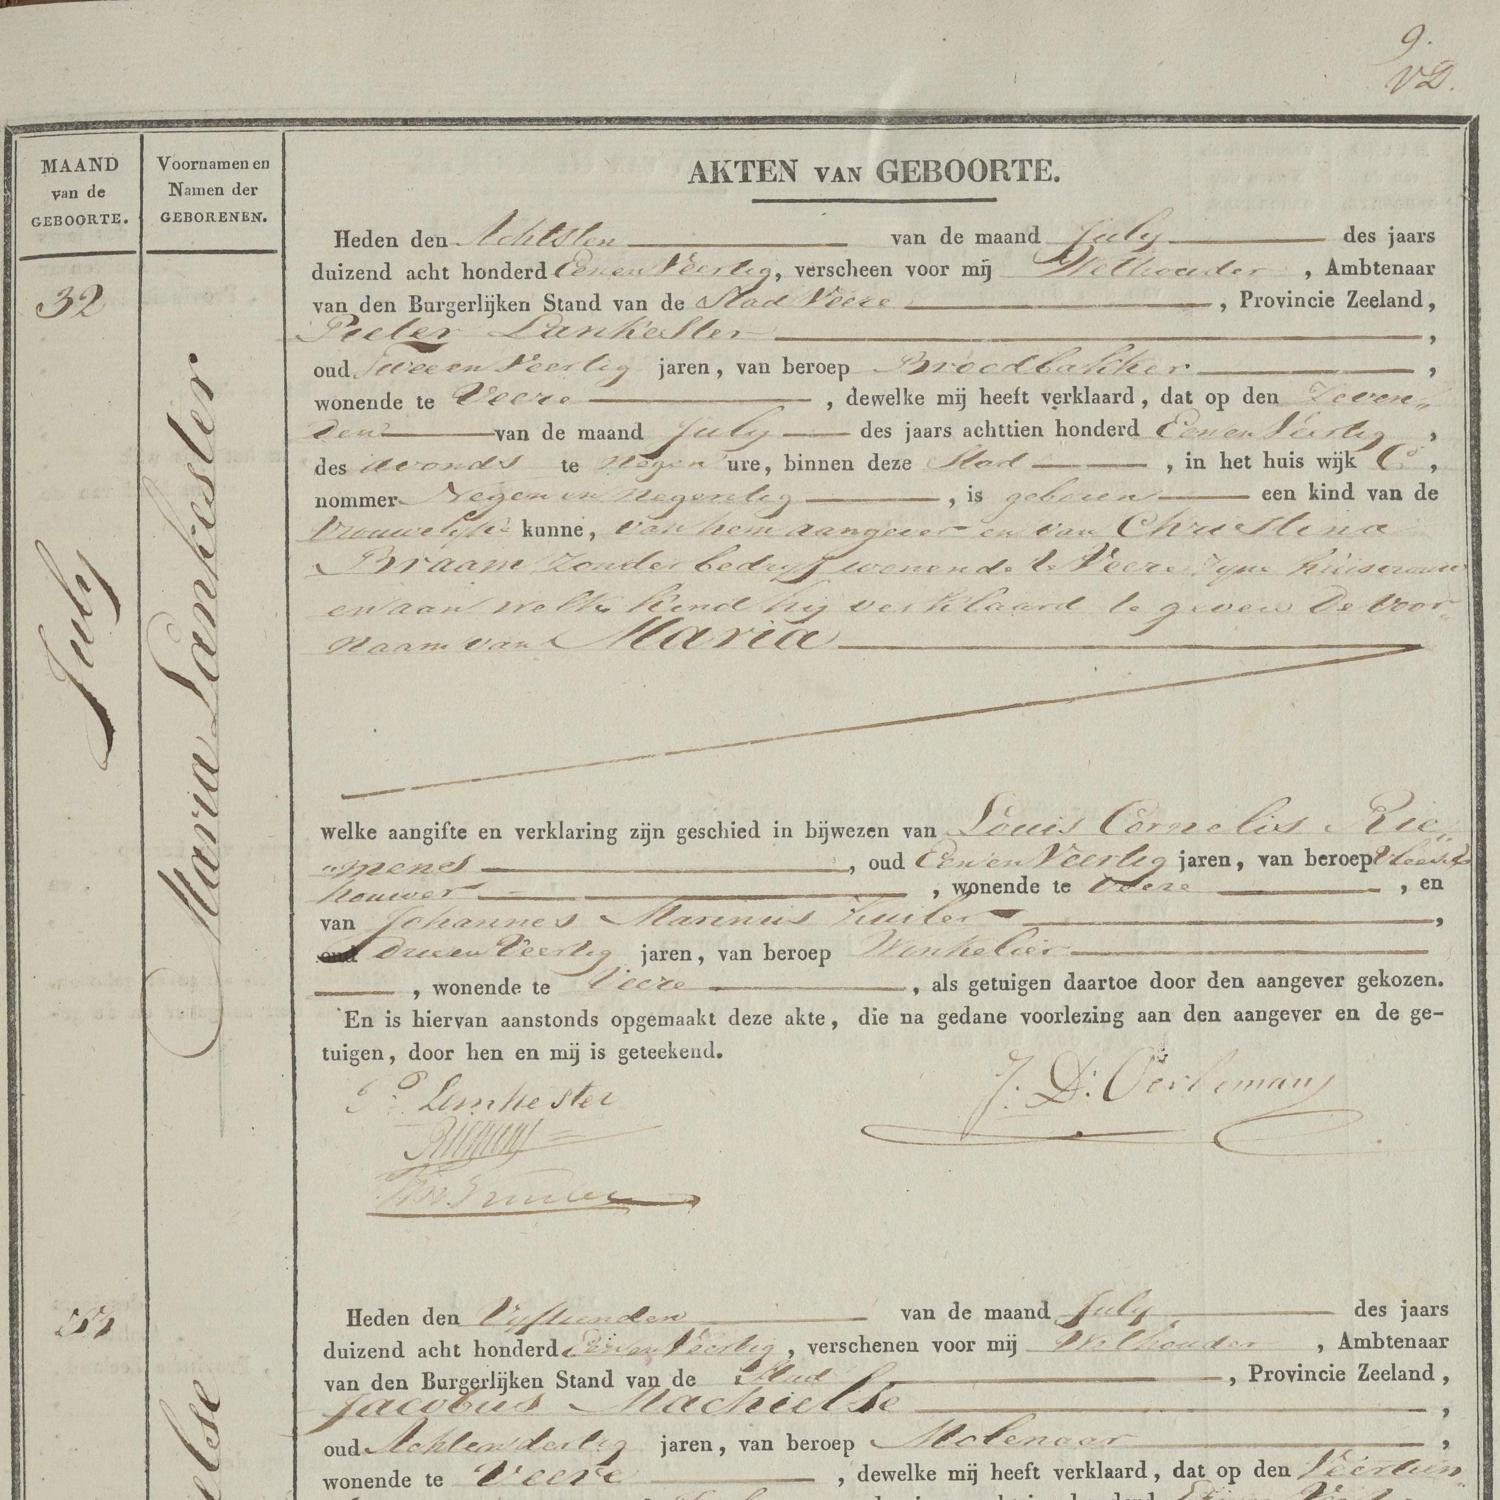 9.
VD.
MAAND
van de
GEBOORTE.
Voornamen en
Namen der
GEBORENEN.
AKTEN VAN GEBOORTE.
32
July
Maria Lankester
Heden den Achtsten van de maand July des jaars
duizend acht honderd Eenen Veertig, verscheen voor mij Wethouder, Ambtenaar
van den Burgerlijken Stand van de Stad Veere, Provincie Zeeland,
Pieter Lankester,
oud Tweeen Veertig jaren, van beroep Broodbakker,
wonende te Veere, dewelke mij heeft verklaard, dat op den Zeven„
den van de maand July des jaars achttien honderd Eenen Veertig,
des avonds te negen ure, binnen deze Stad, in het huis wijk C,
nommer Negen en negentig, is geboren een kind van de
Vrouwelijke kunne, van hem aangever en van Christina
Braam zonder bedryf wonende te Veere zyne huisvrouw
en aan welk kind hy verklaard te geven de voor„
naam van Maria
welke aangifte en verklaring zijn geschied in bijwezen van Louis Cornelis Rie„
„mens, oud Eenen Veertig jaren, van beroep Vleesch
houwer, wonende te Veere, en
van Johannes Marinus Zuiler,
oud Drieen Veertig jaren, van beroep Winkelier
, wonende te Veere, als getuigen daartoe door den aangever gekozen.
En is hiervan aanstonds opgemaakt deze akte, die na gedane voorlezing aan den aangever en de ge-
tuigen, door hen en mij is geteekend.
P. Lenkester
J. D. Oerlemans
Heden den Vyftienden van de maand July des jaars
duizend acht honderd Eenen Veertig, verschenen voor mij Wethouder, Ambtenaar
van den Burgerlijken Stand van de Stad, Provincie Zeeland,
Jacobus Machielse,
oud Achtendertig jaren, van beroep Molenaar,
wonende te Veere, dewelke mij heeft verklaard, dat op den Veertien„